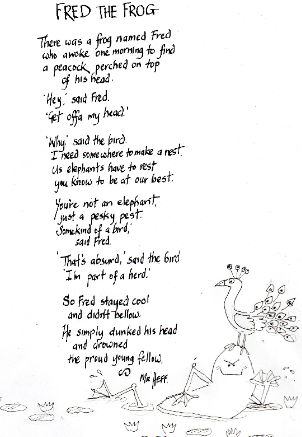 FRED THE FROG
There was a frog named Fred
who awoke one morning to find
a peacock perched on top
of his head.
'Hey,' said Fred.
'Get offa my head.'
'Why,' said the bird.
I need somewhere to make a nest.
Us elephants have to rest
you know to be at our best.
You're not an elephant,
just a pesky pest.
Somekind of a bird,'
said Fred.
'That's absurd,' said the bird
'I'm part of a herd.'
So Fred stayed cool
and didn't bellow.
He simply dunked his head
and drowned
the proud young fellow.
Jeff.